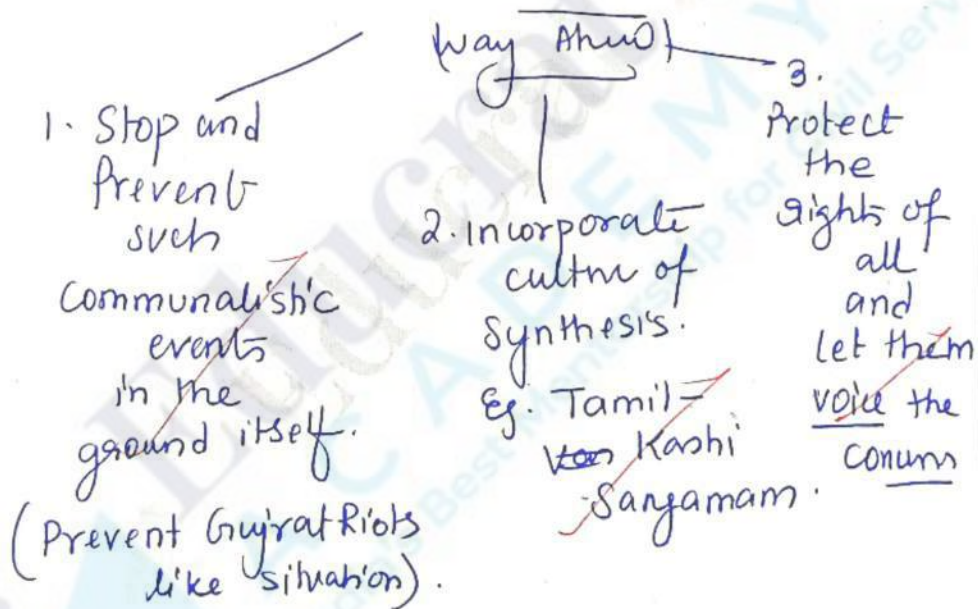 Way Ahead
1. Stop and
Prevent
such
Communalistic
events
in the
ground itself.
(Prevent Gujrat Riots
like situation).
2. incorporate
culture of
Synthesis.
Eg. Tamil-
Kashi
Sangamam.
3.
Protect
the
rights of
all
and
let them
voice the
concerns